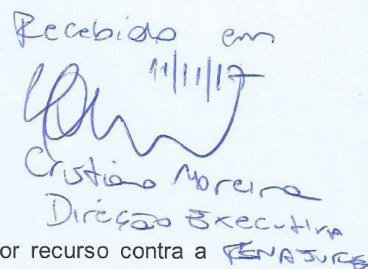 Recebido em
11/11/17
Cristiano Moreira
Direção Executiva
or recurso contra a FENAJUFE